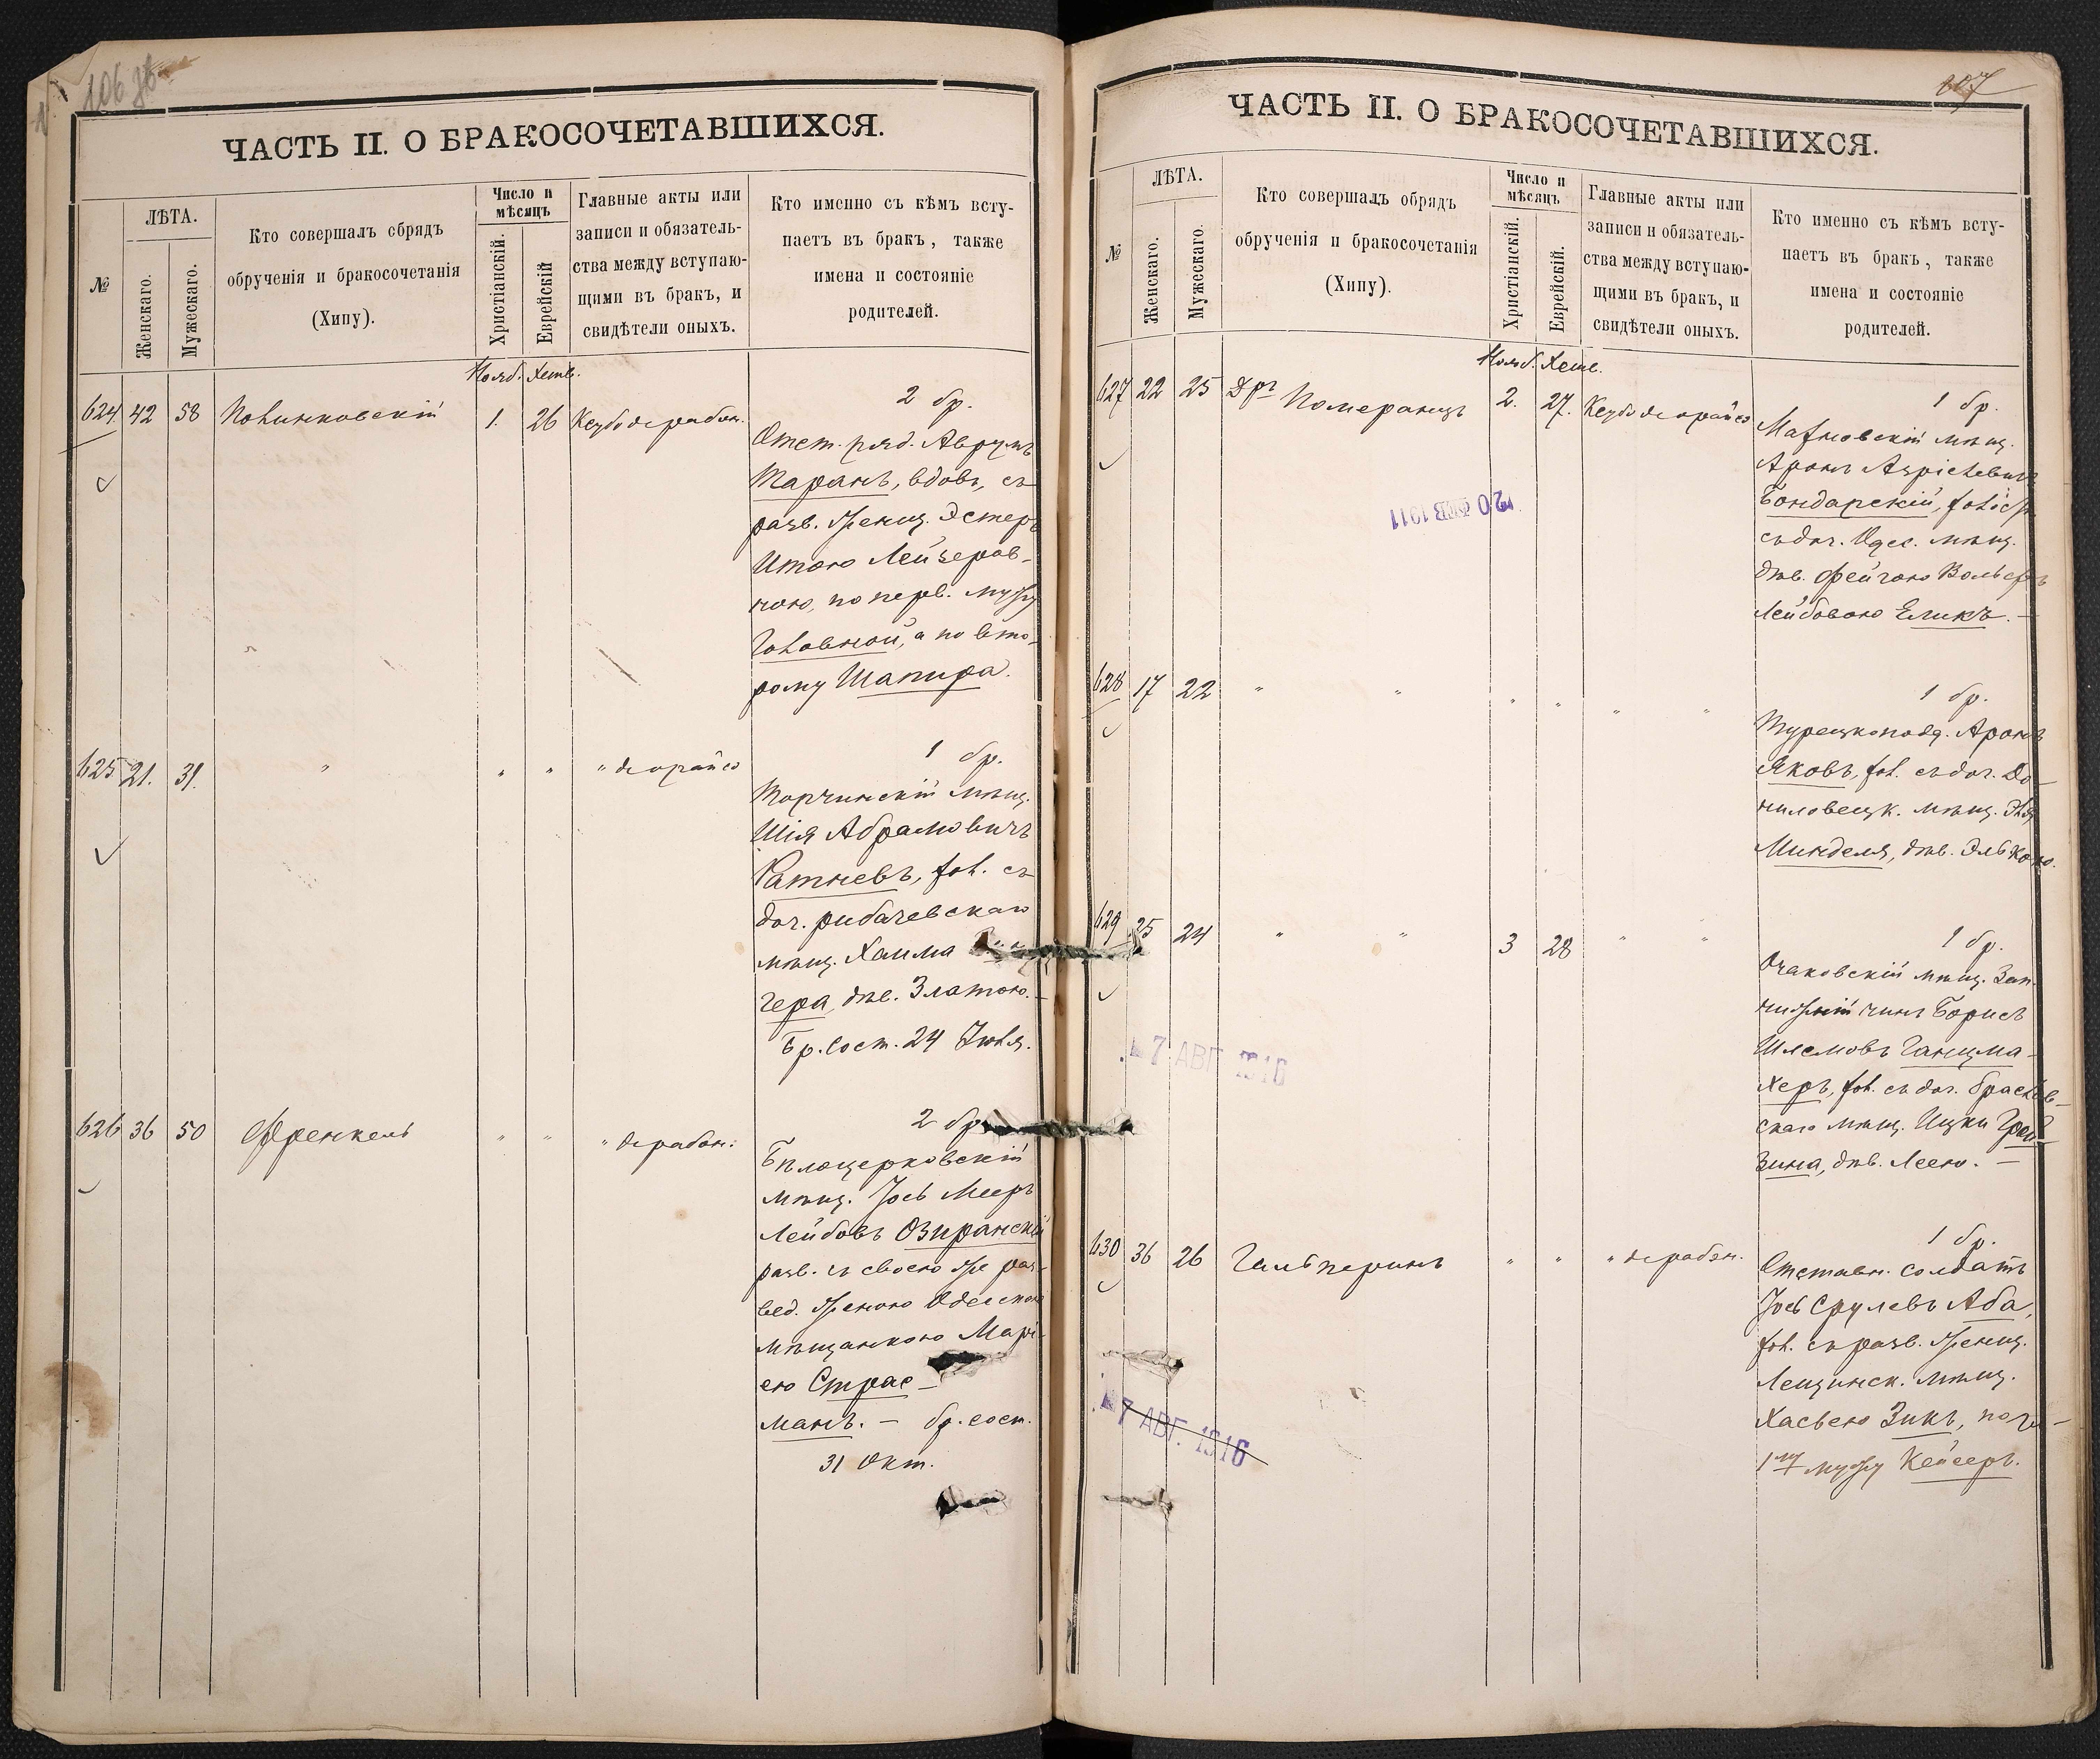 106 об
ЧАСТЬ II. О БРАКОСОЧЕТАВШИХСЯ.
№
ЛѢТА.
Женскаго.
Мужескаго.
Кто совершалъ обрядъ
обрученія и бракосочетанія
(Хипу).
Число и
мѣсяцъ
Христіанскій.
Еврейскій
Главные акты или
записи и обязатель-
ства между вступаю-
щими въ бракъ, и
свидѣтели оныхъ.
Кто именно съ кѣмъ всту-
паетъ въ бракъ, также
имена и состояніе
родителей.
Нояб. Хешв.
624. 42 58 Полинковскій 1. 26 Кеубо дерабон.
2 бр.
Отст. ряд. Аврумъ
Таранъ, вдовъ, съ
разв. женщ. Эстеръ
Итою Лейзеров-
ною, по перв. мужу
Головной, а по вто-
рому Шапира.
625 21. 31. " " " " деорайсо
1 бр.
Торчинскій мѣщ.
Шія Абрамовичъ
Ратневъ, хол. съ
доч. рибачевскаго
мѣщ. Хаима
гера, дѣв. Златою. —
Бр. сост. 24 Июля.
626 36 50 Френкель " " " дерабон.
2 бр.
Бѣлоцерковскій
мѣщ. Іось Мееръ
Лейбовъ Озиранскій
разв. съ своею же раз-
вед. женою Одесскою
мѣщанкою Марі-
ею Страс-
манъ. — бр. сост.
31 Окт.
107
ЧАСТЬ II. О БРАКОСОЧЕТАВШИХСЯ.
№
ЛѢТА.
Женскаго.
Мужескаго.
Кто совершалъ обрядъ
обрученія и бракосочетанія
(Хипу).
Число и
мѣсяцъ
Христіанскій.
Еврейскій.
Главные акты или
записи и обязатель-
ства между вступаю-
щими въ бракъ, и
свидѣтели оныхъ.
Кто именно съ кѣмъ всту-
паетъ въ бракъ, также
имена и состояніе
родителей.
Нояб. Хешв.
627 22 25 Дръ Померанцъ 2. 27. Кеубо деорайсо
1 бр.
мѣщ.
Аронъ
Бондарскій, хол.
съ доч. Одес. мѣщ.
дѣв. Фейгою Вольфъ
Лейбовою Еликъ. —
20 ФЕВ 1911
628 17 22 " " " " " "
1 бр.
Турецкоподд. Аронъ
Яковъ, хол. съ доч. До-
ниловецк. мѣщ.
Минделя, дѣв. Элькою.
629 25 24 " " 3 28 " "
1 бр.
Очаковскій мѣщ. Зап.
нижній чинъ Борисъ
Шлемовъ Ганцма-
херъ, хол. съ доч. Браслав-
скаго мѣщ. Ицки Грей-
зина, дѣв. Леею. —
7 АВГ 1916
630 36 26 Гальперинъ " " " дерабон.
1 бр.
Отставн. солдатъ
Іось Срулевъ Аба,
хол. съ разв. женщ.
Лещинск. мѣщ.
Хасьею Зикъ, по
1му мужу Кейсеръ.
7 АВГ. 1916